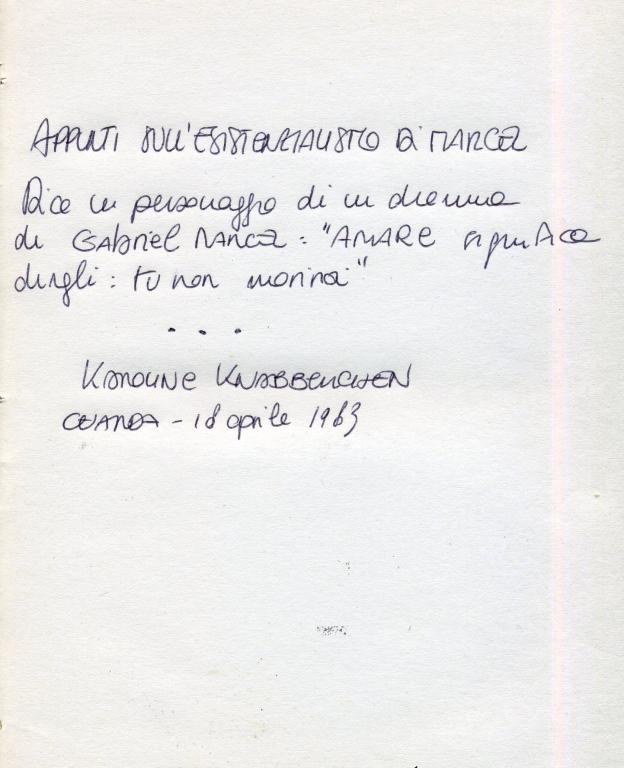 APPUNTI SULL'ESISTENZIALISMO DI MARCEL
Dice un personaggio di un dramma
di Gabriel Marcel: "AMARE significa
dirgli: tu non morirai"
. . .
KAROLINE KNABBERCHEN
- 18 aprile 1983